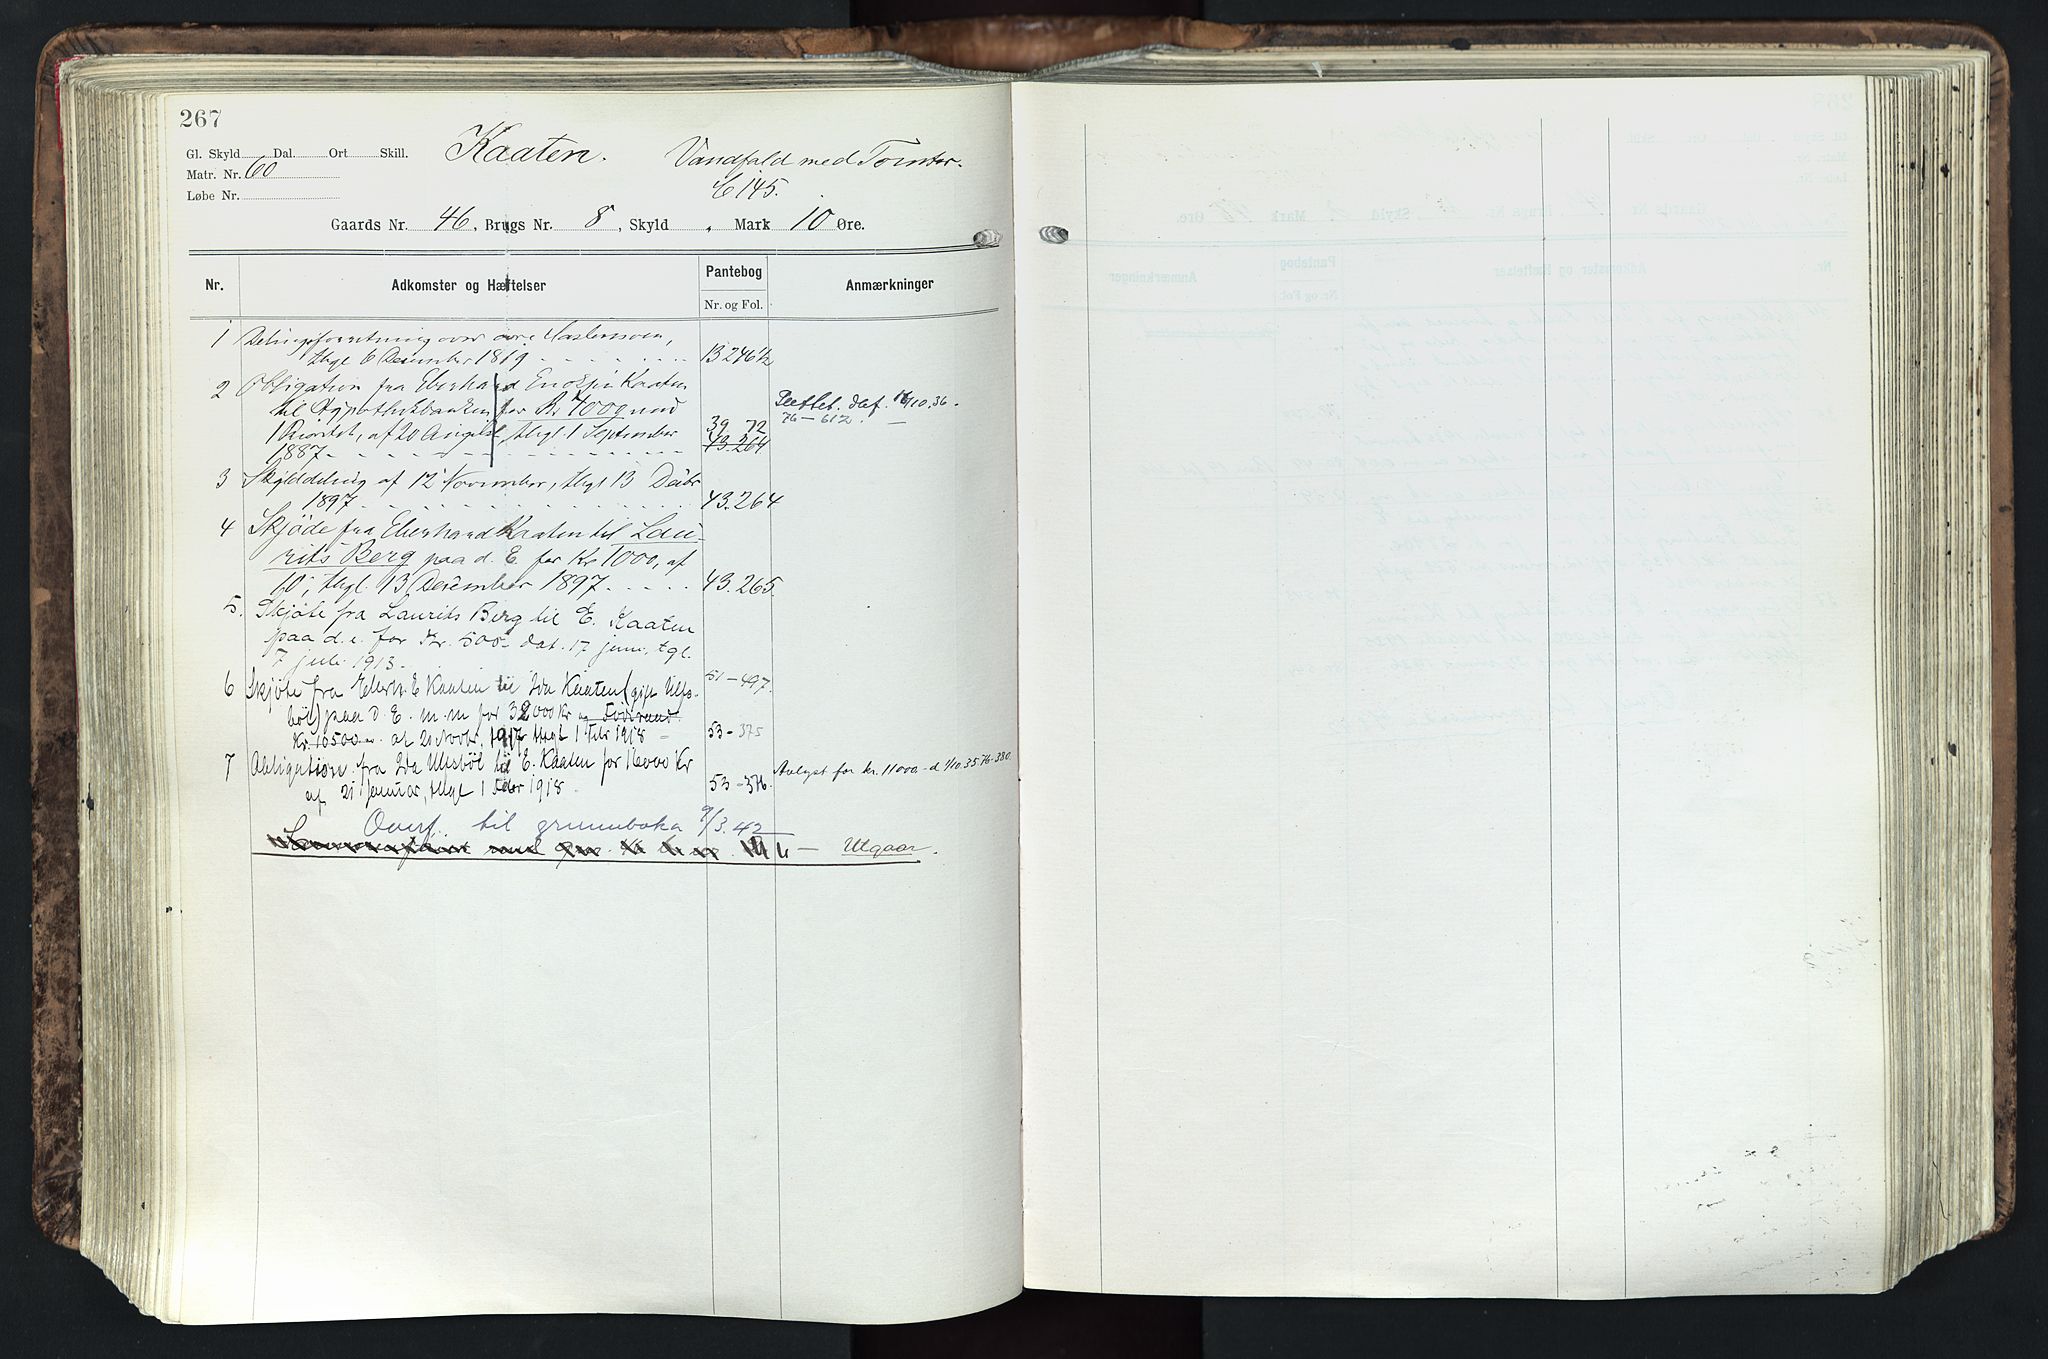 267
Gl. Skyld Dal. Ort Skill.
Matr. Nr. 60
Løbe Nr.
Kaaten. Vandfald med Tomter.
145.
Gaards Nr. 46, Brugs Nr. 8, Skyld „ Mark 10 Øre.
Nr. Adkomster og Hæftelser Pantebog Anmærkninger
Nr. og Fol.
1 Delingsforretning over
thgl. 6 December 1819 13 246½
2 Obligation fra Eberhard Enoksen Kaaten
til Hypothekbanken for Kr 4000 med Slettet. 10.36.
1 Prioritet, af 20 August, thgl. 1 September 39 72 76-612.
1887 43.264
3 Skylddeling af 12 November, thgl 13 Decbr
1897 43.264
4 Skjøde fra Eberhard Kaaten til Lau-
rits Berg paa d. E. for Kr 1000, af
10, thgl. 13 December 1897 43.265.
5. Skjøte fra Laurits Berg til E. Kaaten
paa d. e. for Kr. 500 dat. 17 juni, tgl.
7 juli 1913. 51-497.
6 Skjøte fra Eberh. E Kaaten til Ida Kaaten (gift Ulfs-
böl) paa d. E. m. m for 32000 Kr og Föderaad
Kr. 10500 af 21 Novbr. 1917 thgl 1 Febr 1918 53-375
7 Obligation fra Ida Ulfsböl til E. Kaaten for 16000 Kr Avlyst for kr. 11000.- d 1/10.35. 76-380.
af 21 Januar, thgl 1 Febr 1918. 53-376.
Overf. til grunnboka 9/3.42
med Utgaar.